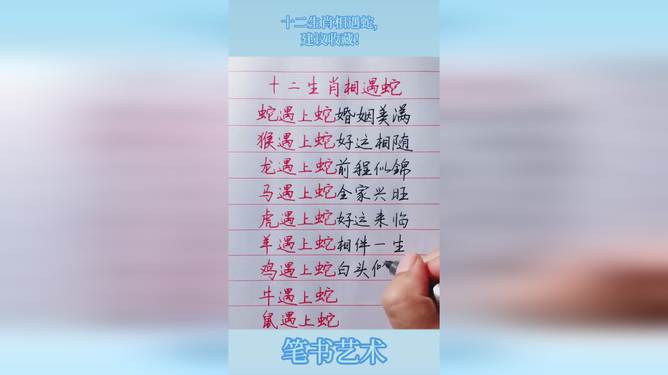 十二生肖相遇蛇,
建议收藏!
十二生肖相遇蛇
蛇遇上蛇婚姻美满
猴遇上蛇好运相随
龙遇上蛇前程似锦
马遇上蛇全家兴旺
虎遇上蛇好运来临
羊遇上蛇相伴一生
鸡遇上蛇白头
牛遇上蛇
鼠遇上蛇
笔书艺术